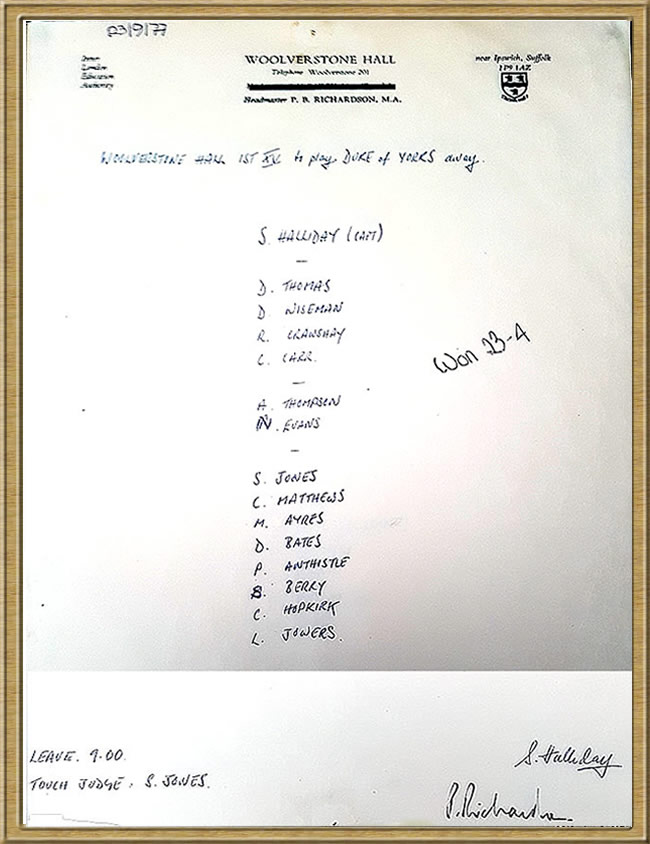 23/9/77
Inner
London
Education
Authority
WOOLVERSTONE HALL
Telephone Woolverstone 201
Headmaster P. B. RICHARDSON, M.A.
near Ipswich, Suffolk
IP9 1AZ
WOOLVERSTONE HALL 1ST XV to play DUKE of YORKS away.
S. HALLIDAY (CAPT)
—
D. THOMAS
D. WISEMAN
R. CRAWSHAY
C. CARR.
—
A. THOMPSON
N. EVANS
—
S. JONES
C. MATTHEWS
M. AYRES
D. BATES
P. ANTHISTLE
B. BERRY
C. HOPKIRK
L. JOWERS.
Won 23-4
LEAVE. 9.00.
TOUCH JUDGE, S. JONES.
S. Halliday
P. Richardson